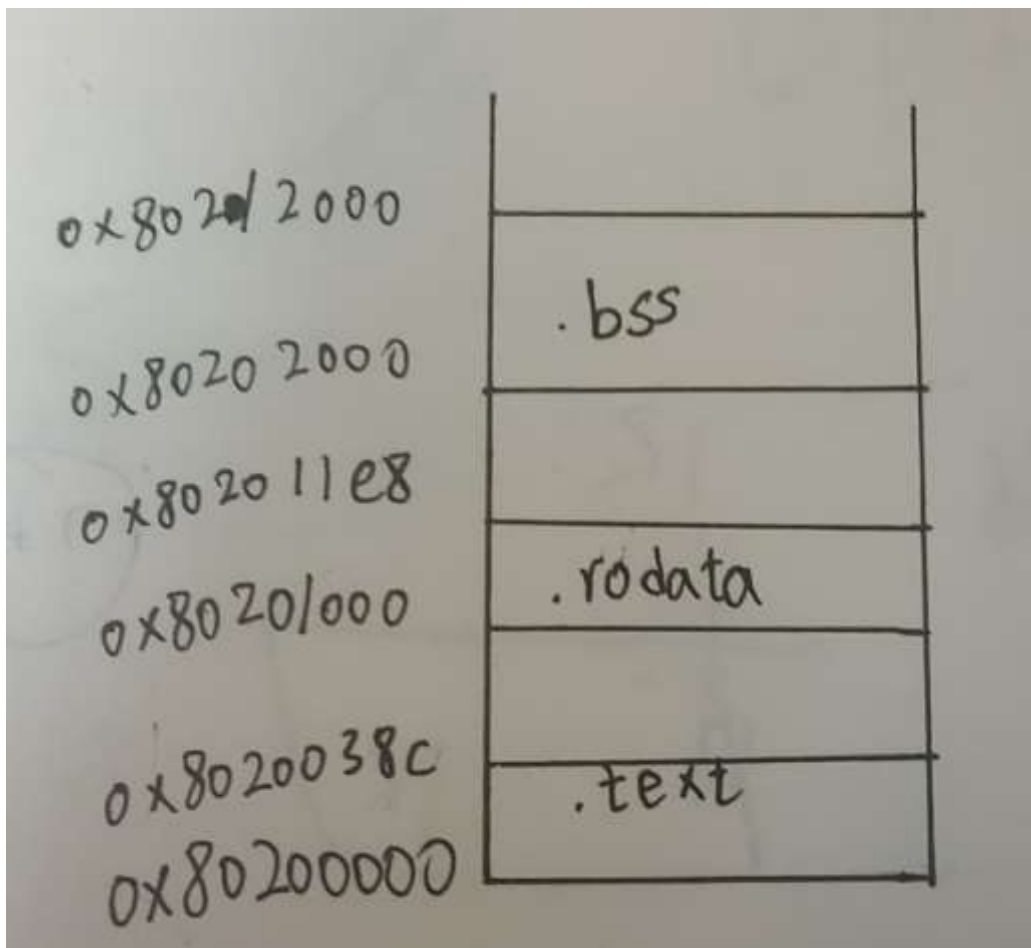 0x80212000
.bss
0x80202000
0x802011e8
.rodata
0x80201000
0x8020038c
.text
0x80200000